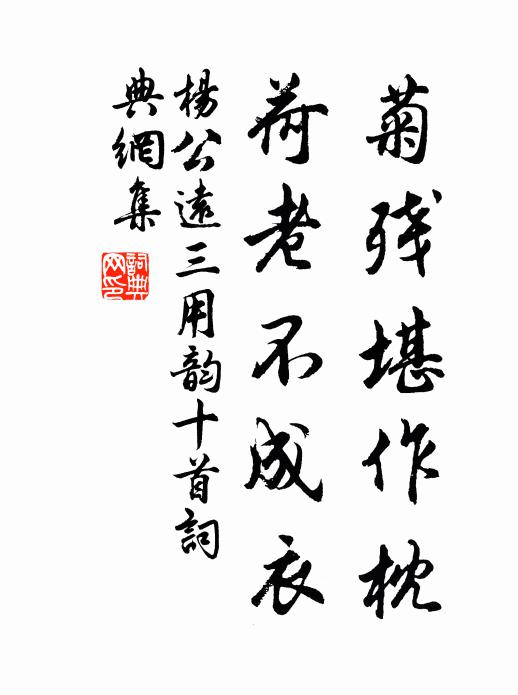 菊残堪作枕
荷老不成衣
楊公遠三用韵十首詞
典網集
詞典
网印